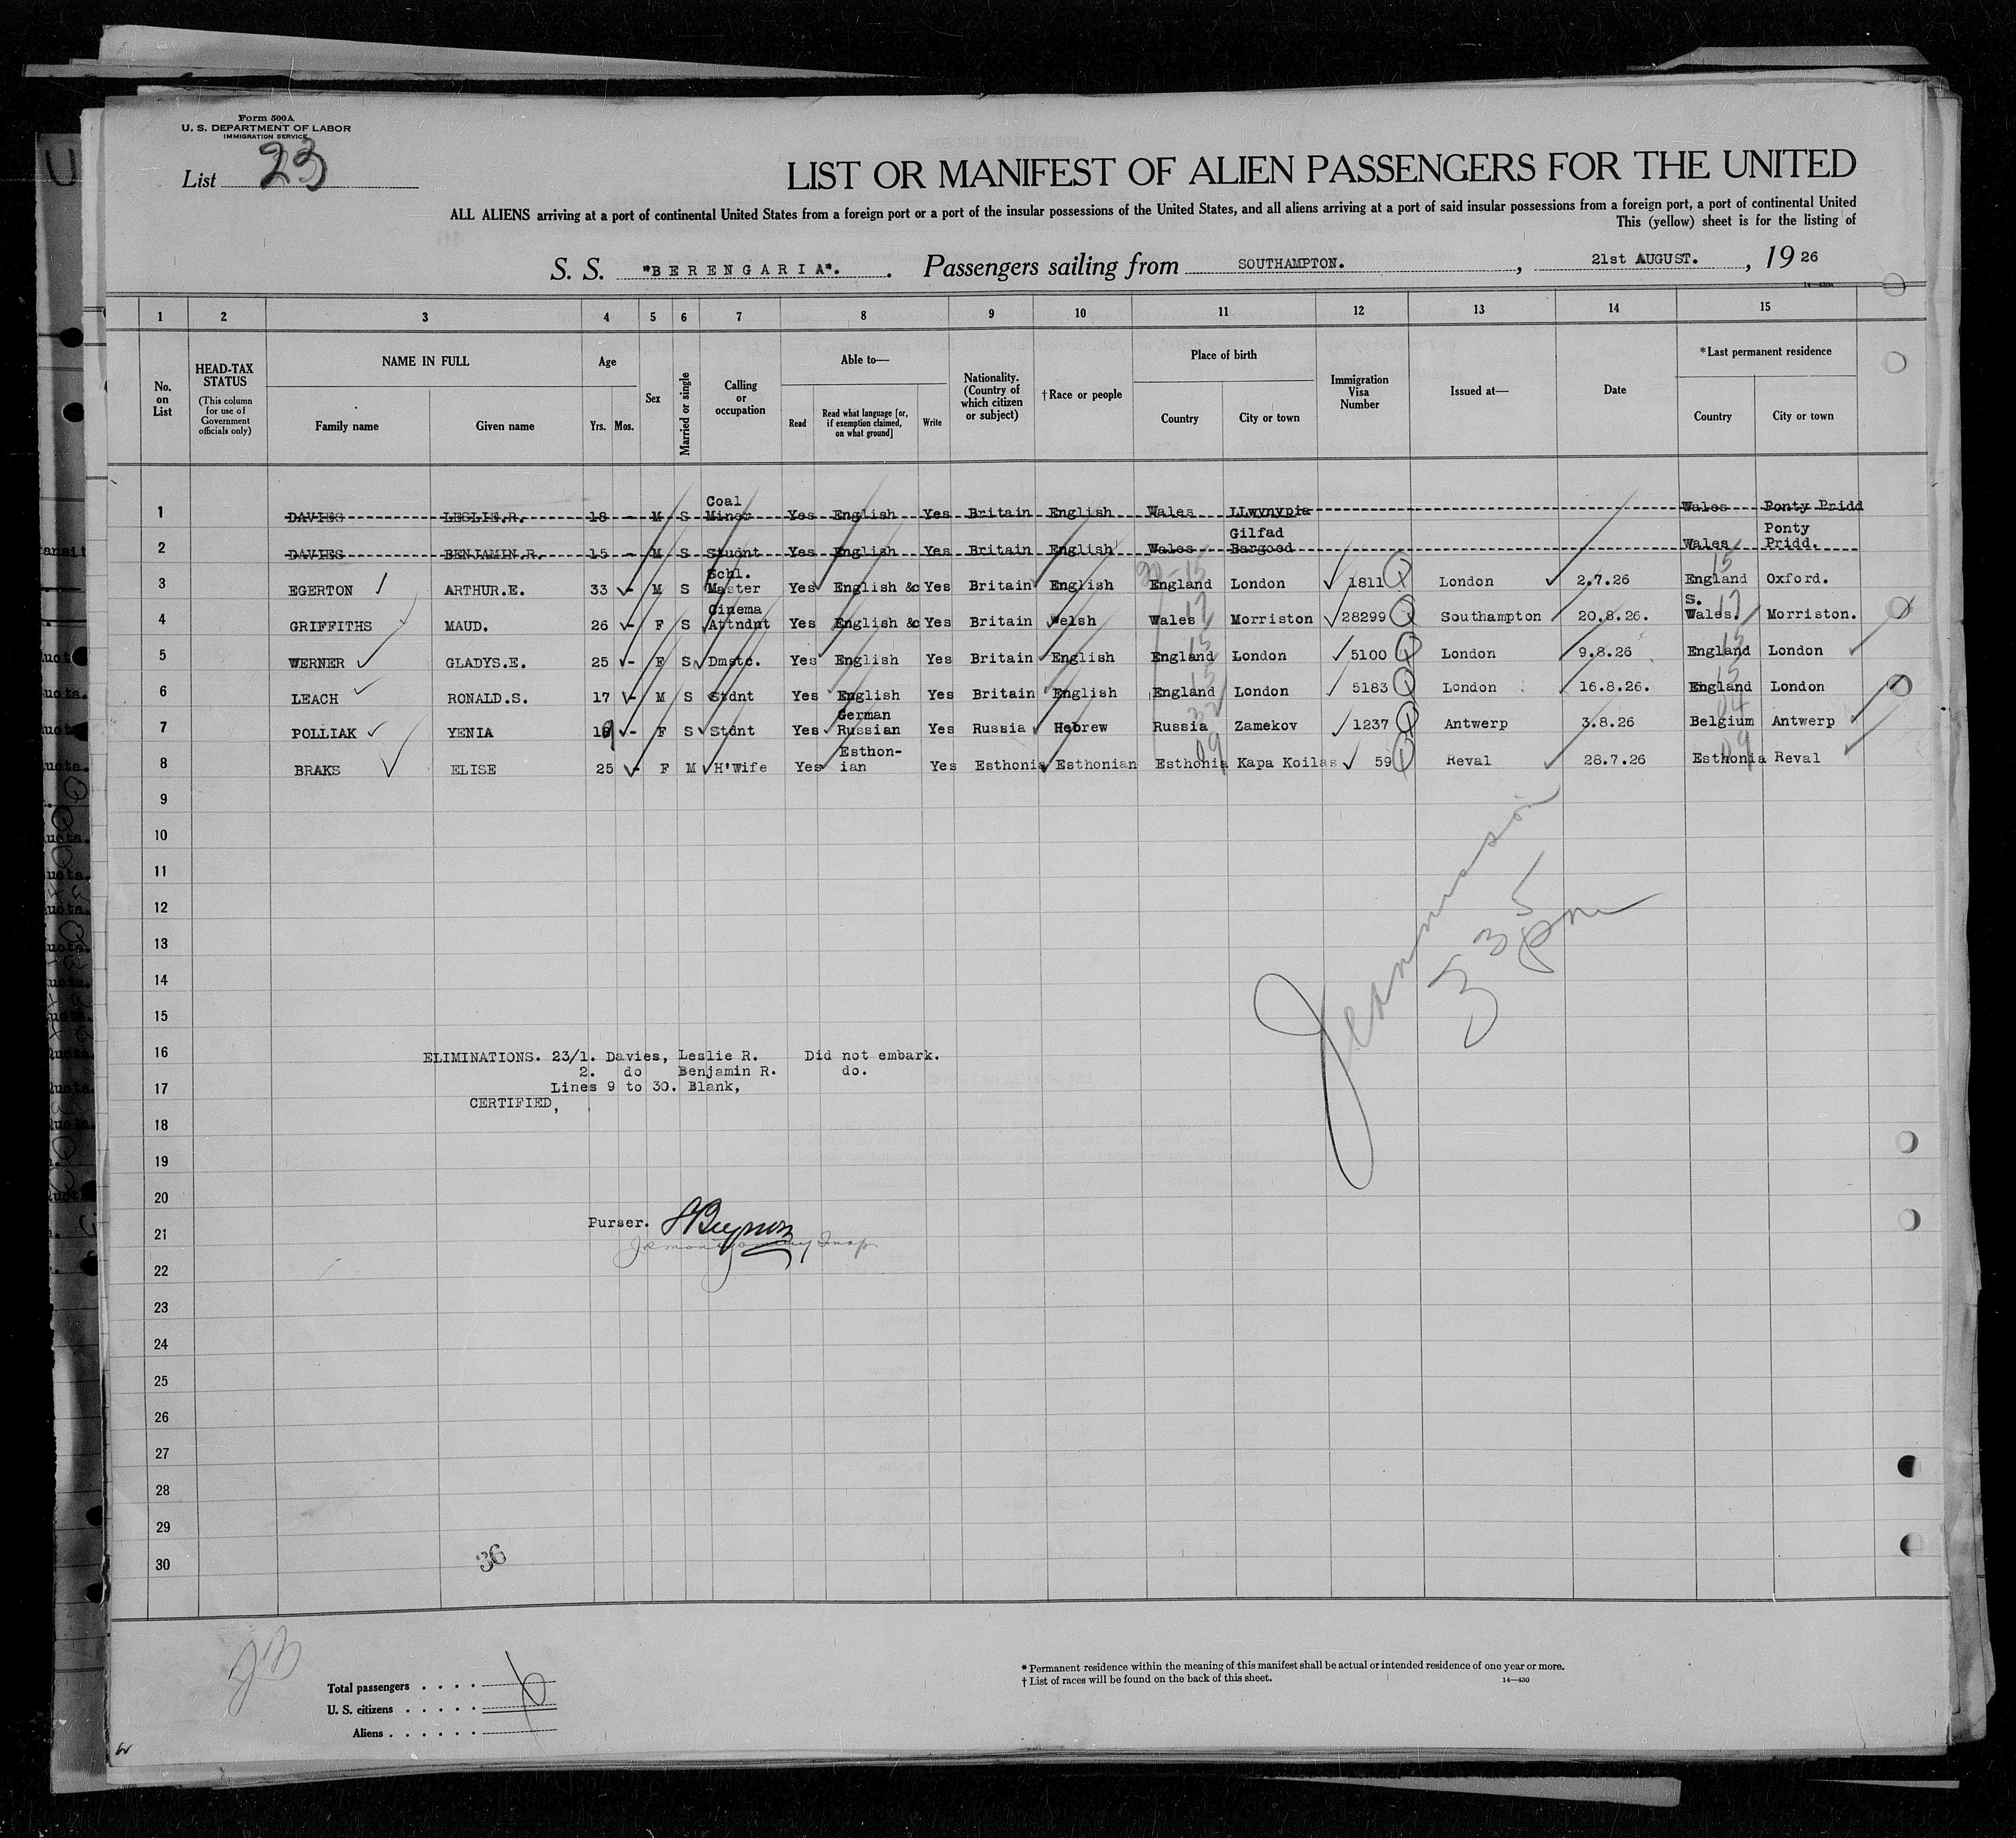 Form 500A
U. S. DEPARTMENT OF LABOR
IMMIGRATION SERVICE
List 23
LIST OR MANIFEST OF ALIEN PASSENGERS FOR THE UNITED
ALL ALIENS arriving at a port of continental United States from a foreign port or a port of the insular possessions of the United States, and all aliens arriving at a port of said insular possessions from a foreign port, a port of continental United
This (yellow) sheet is for the listing of
S. S. "BERENGARIA". Passengers sailing from SOUTHAMPTON. , 21st AUGUST. , 19 26
14—430a
1 2 3 4 5 6 7 8 9 10 11 12 13 14 15
No. on List
HEAD-TAX STATUS (This column for use of Government officials only)
NAME IN FULL
Family name Given name
Age
Yrs. Mos.
Sex
Married or single
Calling or occupation
Able to—
Read Read what language [or, if exemption claimed, on what ground] Write
Nationality. (Country of which citizen or subject)
†Race or people
Place of birth
Country City or town
Immigration Visa Number
Issued at—
Date
*Last permanent residence
Country City or town
1 DAVIES LESLIE.R. 18 - M S Coal Miner Yes English Yes Britain English Wales LLwynypia Wales Ponty Pridd
2 DAVIES BENJAMIN.R. 15 - M S Studnt Yes English Yes Britain English Wales Gilfad Bargoed Wales Ponty Pridd.
3 EGERTON ARTHUR.E. 33 - M S Schl. Master Yes English &c Yes Britain English England London 1811 Q London 2.7.26 England Oxford.
4 GRIFFITHS MAUD. 26 - F S Cinema Attndnt Yes English &c Yes Britain Welsh Wales Morriston 28299 Q Southampton 20.8.26. S. Wales. Morriston.
5 WERNER GLADYS.E. 25 - F S Dmstc. Yes English Yes Britain English England London 5100 Q London 9.8.26 England London
6 LEACH RONALD.S. 17 - M S Stdnt Yes English Yes Britain English England London 5183 Q London 16.8.26. England London
7 POLLIAK YENIA 19 - F S Stdnt Yes German Russian Yes Russia Hebrew Russia Zamekov 1237 Q Antwerp 3.8.26 Belgium Antwerp
8 BRAKS ELISE 25 - F M H'Wife Yes Esthon-ian Yes Esthonia Esthonian Esthonia Kapa Koilas 59 Q Reval 28.7.26 Esthonia Reval
9
10
11
12
13
14
15
16 ELIMINATIONS. 23/1. Davies, Leslie R. Did not embark.
2. do Benjamin R. do.
17 Lines 9 to 30. Blank,
CERTIFIED,
18
19
20
Purser.
21
22
23
24
25
26
27
28
29
30
36
Total passengers 6
U. S. citizens
Aliens
* Permanent residence within the meaning of this manifest shall be actual or intended residence of one year or more.
† List of races will be found on the back of this sheet. 14—430